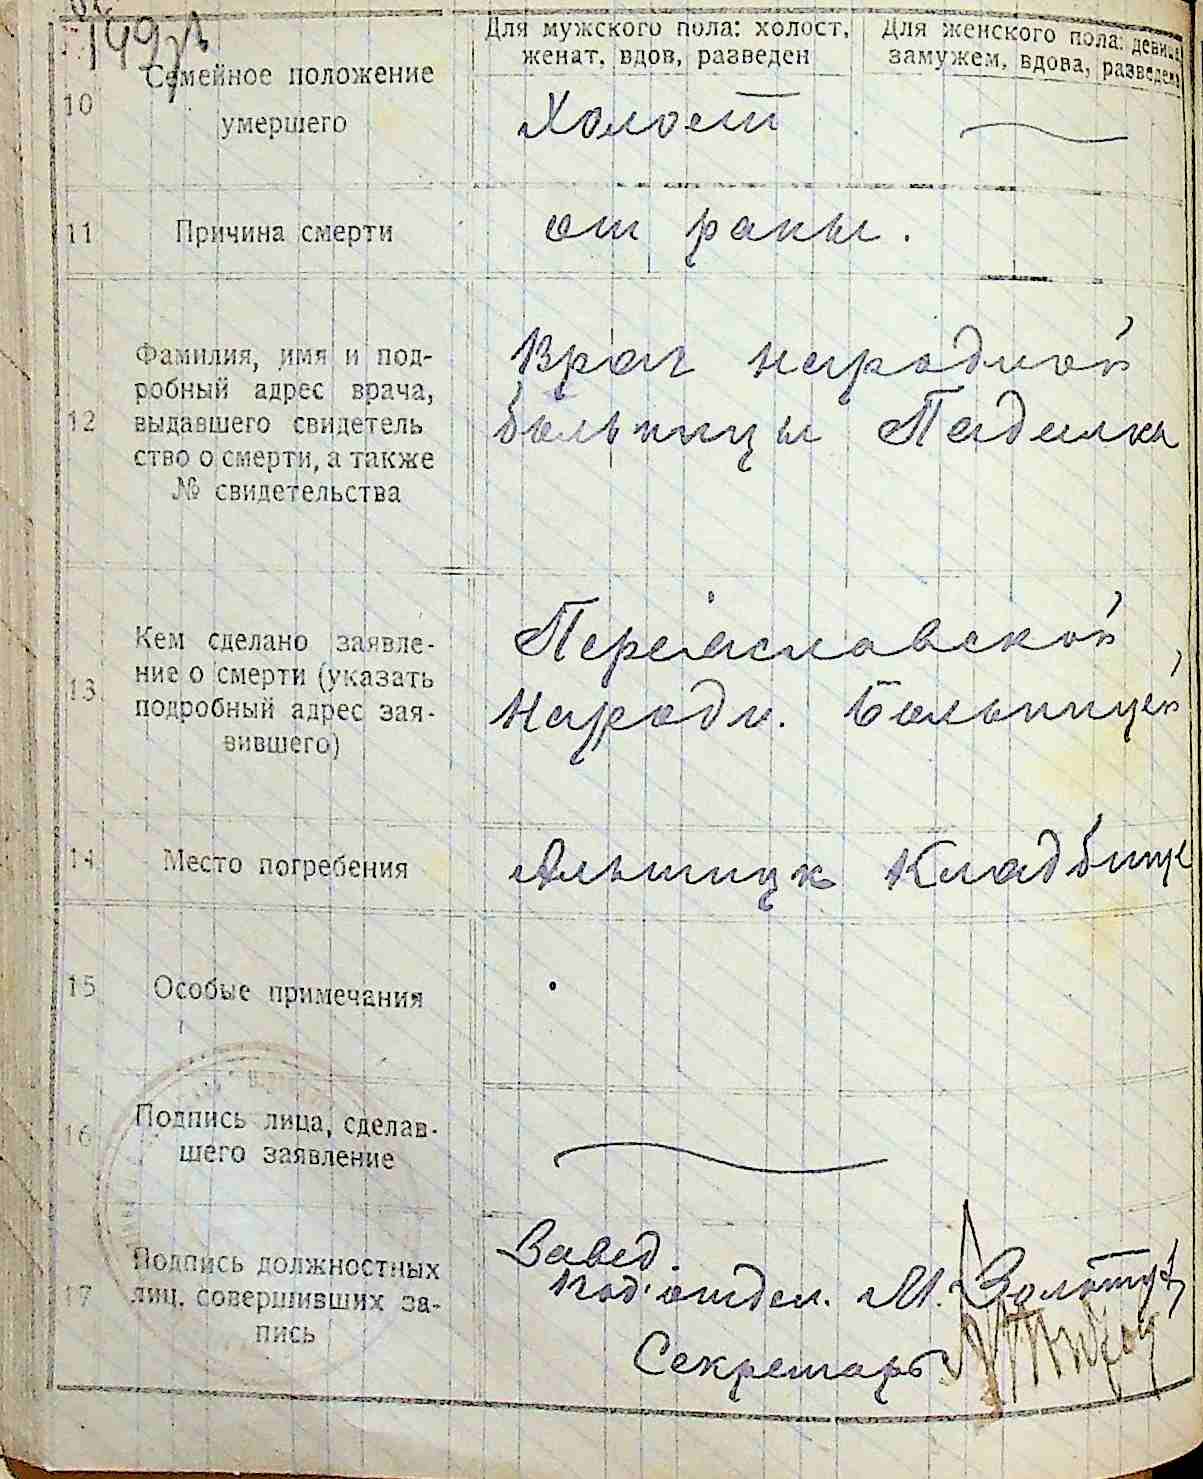 149
Для мужского пола: холост,
женат, вдов, разведен
Для женского пола: девица,
замужем, вдова, разведена
10
Семейное положение
умершего
Холост
11
Причина смерти
от раны.
12
Фамилия, имя и под-
робный адрес врача,
выдавшего свидетель
ство о смерти, а также
№ свидетельства
Врач народной
больницы Падалка
13
Кем сделано заявле-
ние о смерти (указать
подробный адрес зая-
вившего)
Переяславской
Народн. Больницей
14
Место погребения
Кладбище
15
Особые примечания
16
Подпись лица, сделав-
шего заявление
17
Подпись должностных
лиц, совершивших за-
пись
Завед.
Под'отдел. М.
Секретарь